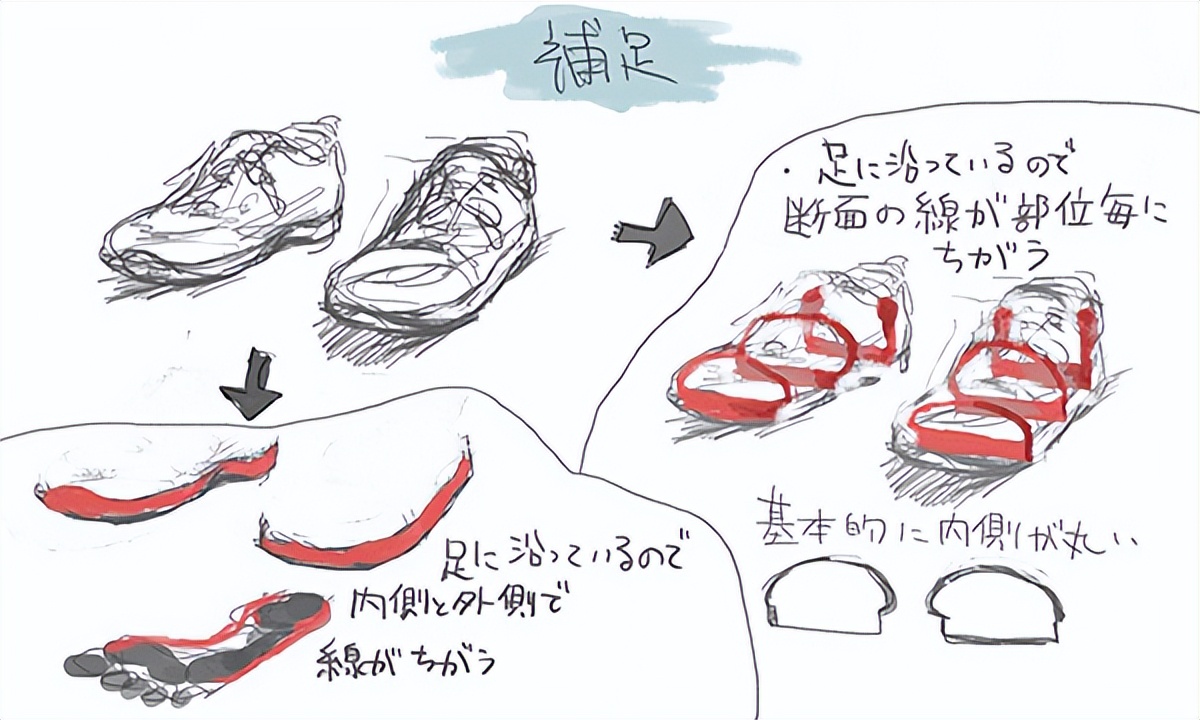 補足
・足に沿っているので
断面の線が部位毎に
ちがう
基本的に内側が丸い
足に沿っているので
内側と外側で
線がちがう